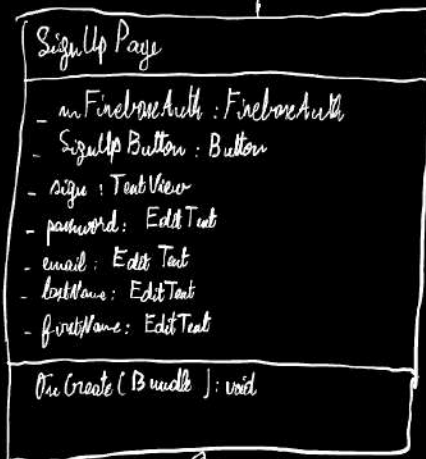 SignUp Page
- mFirebaseAuth : FirebaseAuth
- SignUp Button : Button
- sign : TextView
- password : EditText
- email : Edit Text
- lastName : EditText
- firstName : EditText
OnCreate ( Bundle ) : void